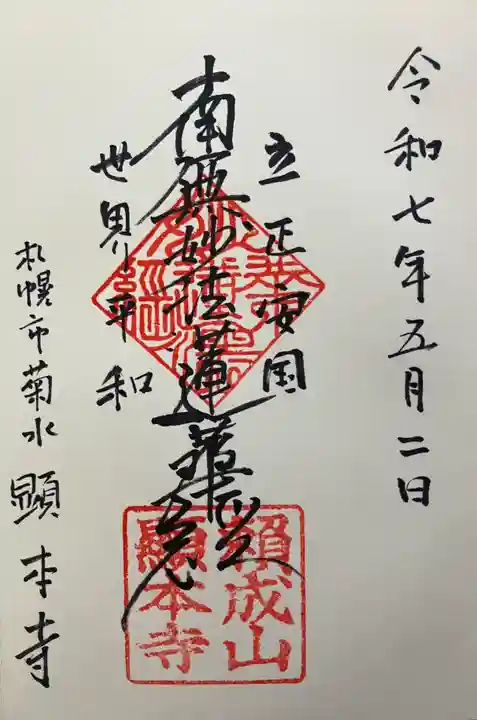 令和七年五月二日
立正安国
南無妙法蓮華経
世界平和
札幌市菊水 顕本寺
頭成山
顯本寺